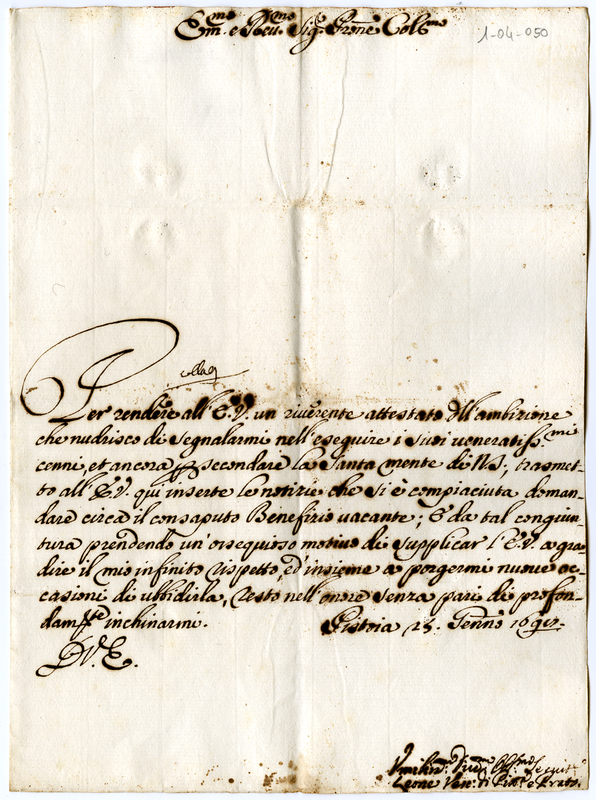 Em.mo e Reu.mo Sig.r Prone Col.mo
1-04-050
Per rendere all' E.V. un riuerente attestato dell'ambizione
che nudrisco di segnalarmi nell'eseguire i suoi ueneratiss.mi
cenni, et ancora p secondare la santa mente di NS; trasmet-
to all' E.V. qui inserte le notizie che si è compiaciuta doman-
dare circa il consaputo Benefizio uacante; E da tal congiun-
tura prendendo un'ossequioso motiuo di supplicar l' E.V. a gra-
dire il mio infinito rispetto, ed insieme a porgermi nuoue oc-
casioni di ubbidirla, resto nell'onore senza pari di profon-
damte inchinarmi.
Pistoia 25. Genno
D.V.E.
Leone Ven: di Pist.a e Prato.